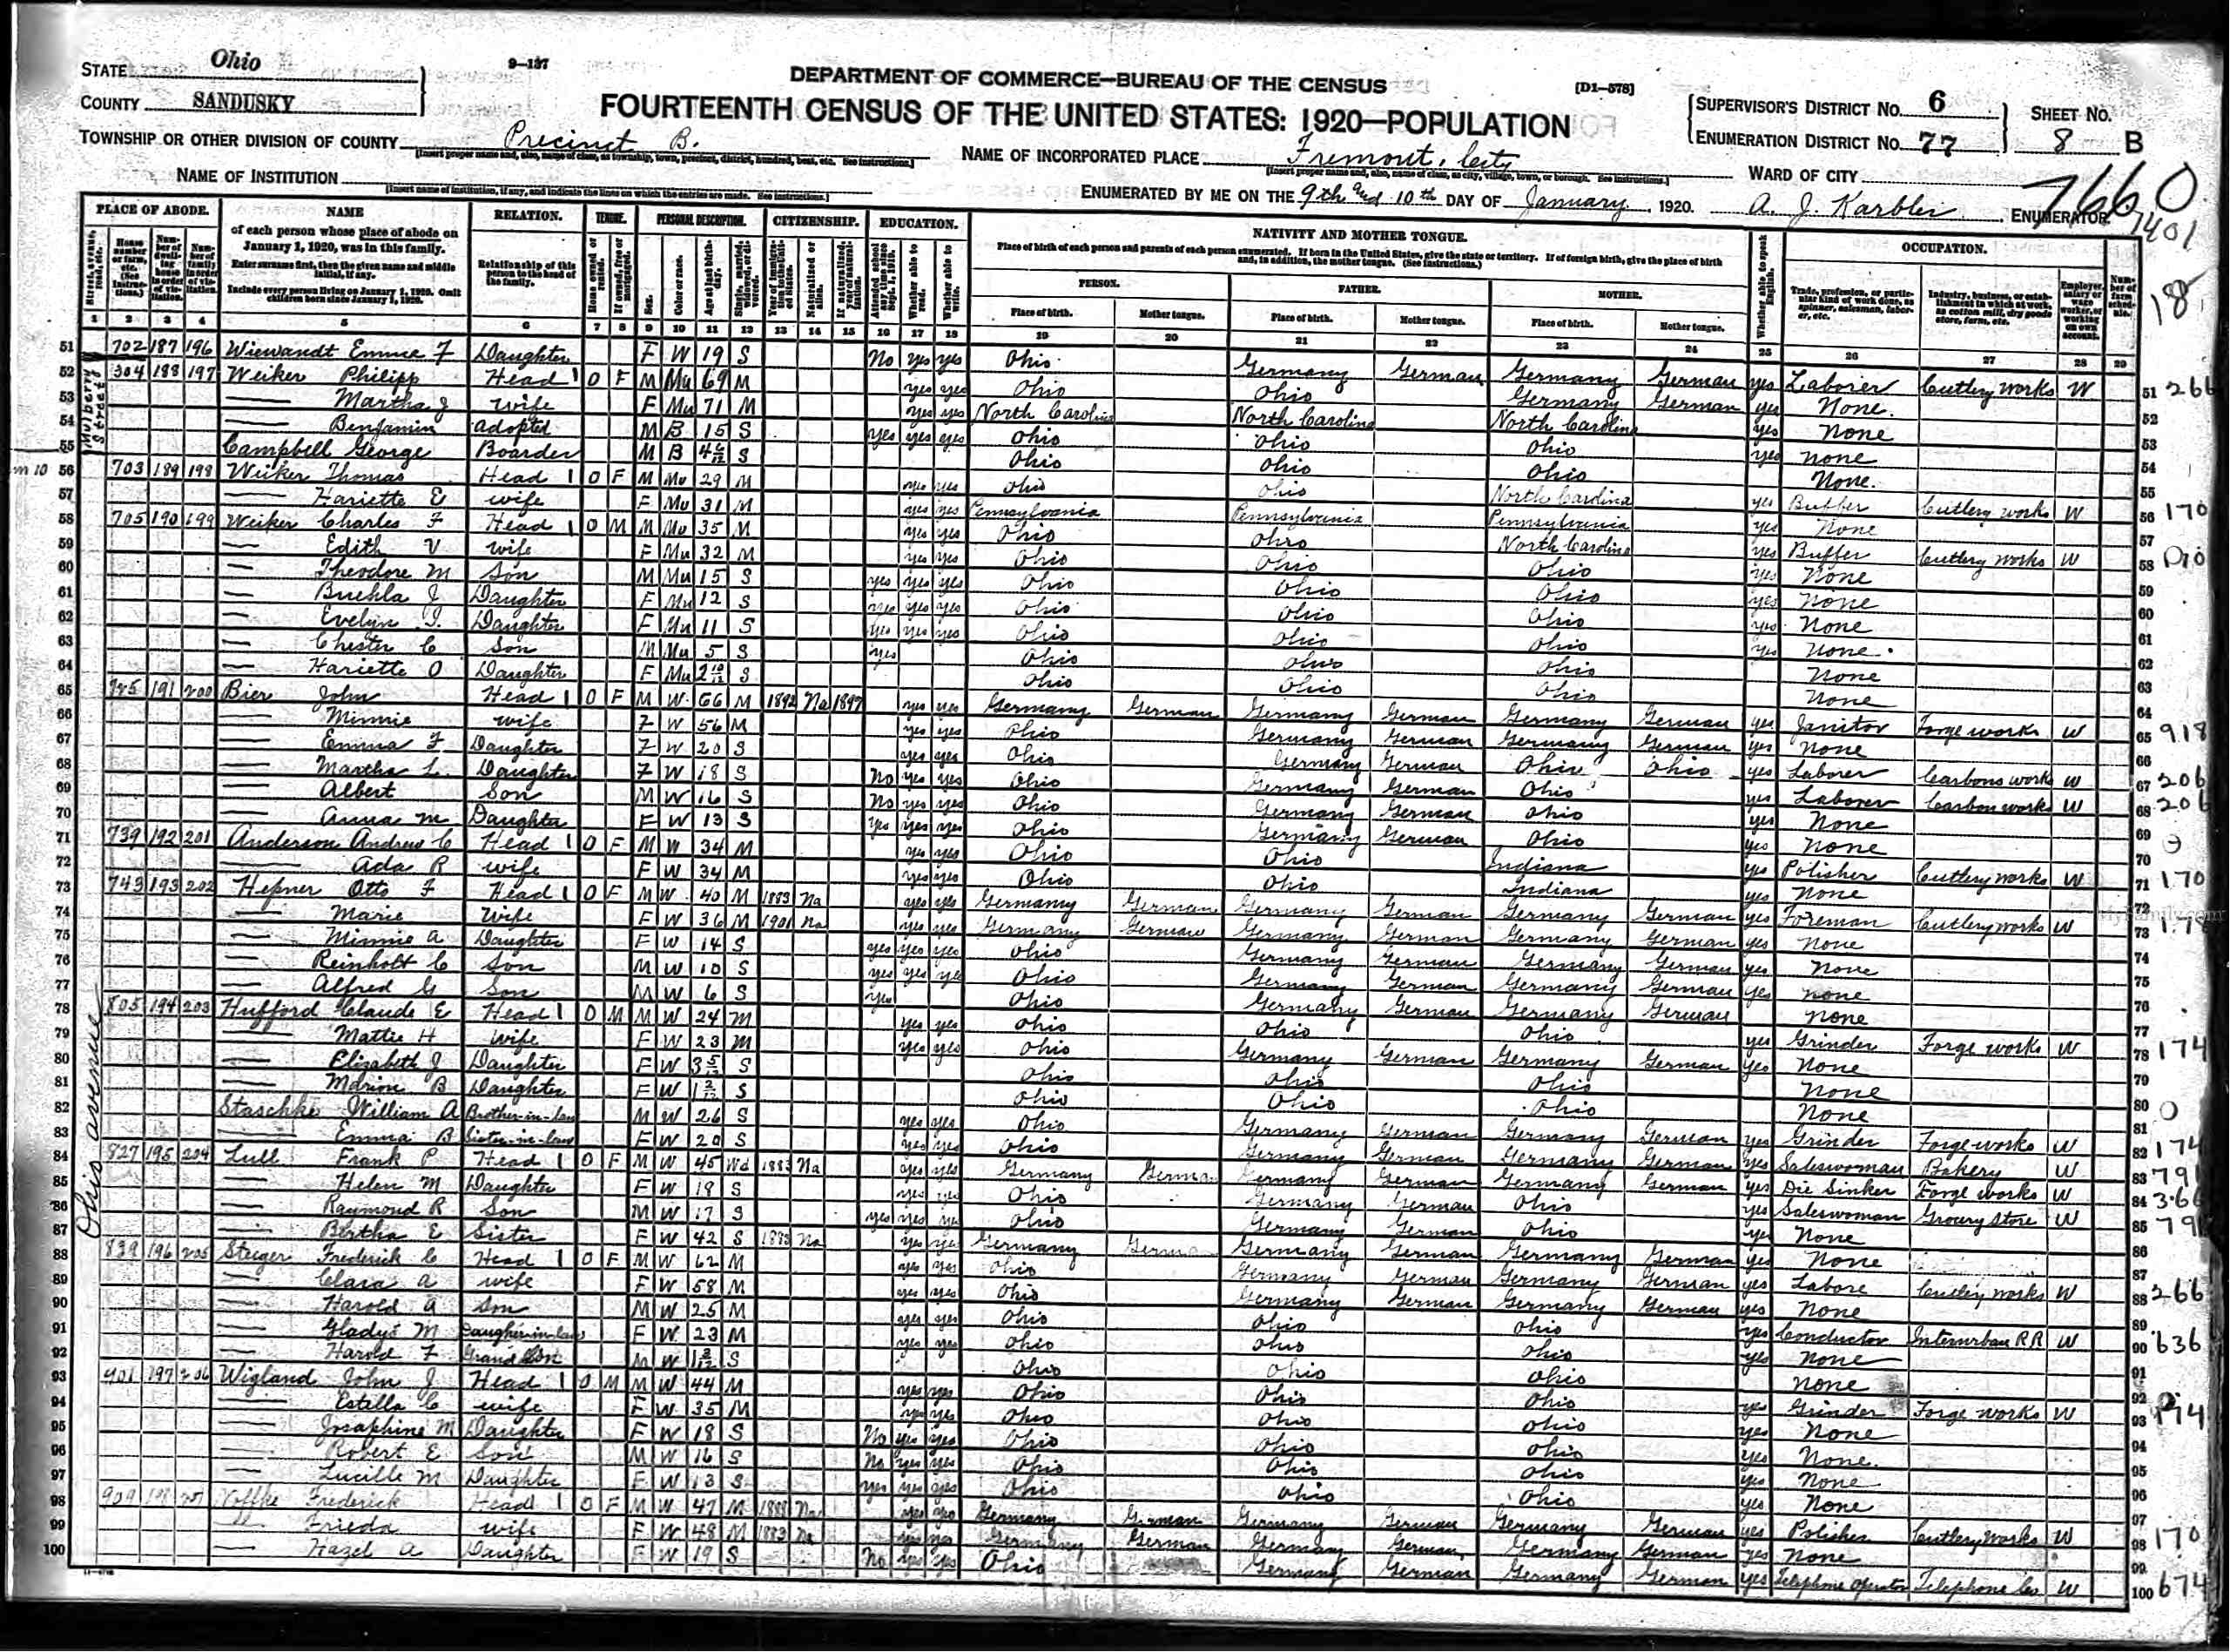 STATE Ohio
9-137
DEPARTMENT OF COMMERCE—BUREAU OF THE CENSUS
[D1-578]
COUNTY SANDUSKY
FOURTEENTH CENSUS OF THE UNITED STATES: 1920—POPULATION
SUPERVISOR'S DISTRICT NO. 6
ENUMERATION DISTRICT NO. 77
SHEET NO. 8 B
TOWNSHIP OR OTHER DIVISION OF COUNTY Precinct B.
NAME OF INCORPORATED PLACE Fremont, City
NAME OF INSTITUTION
WARD OF CITY
7660
ENUMERATED BY ME ON THE 9th and 10th DAY OF January, 1920. A. J. Karbler, ENUMERATOR
7401
PLACE OF ABODE. NAME RELATION. TENURE. PERSONAL DESCRIPTION. CITIZENSHIP. EDUCATION. NATIVITY AND MOTHER TONGUE. OCCUPATION.
of each person whose place of abode on January 1, 1920, was in this family.
PERSON. FATHER. MOTHER.
Place of birth. Mother tongue. Place of birth. Mother tongue. Place of birth. Mother tongue.
1 2 3 4 5 6 7 8 9 10 11 12 13 14 15 16 17 18 19 20 21 22 23 24 25 26 27 28 29
Mulberry Street
Ohio avenue
51 702 187 196 Wiewandt Emma F Daughter F W 19 S No yes yes Ohio Germany German Germany German yes Laborer Cutlery works W 266
52 304 188 197 Weiker Philipp Head 1 O F M Mu 69 M yes yes Ohio Ohio Germany German yes None
53 Martha J wife F Mu 71 M yes yes North Carolina North Carolina North Carolina yes None
54 Benjamin adopted M B 15 S yes yes yes Ohio Ohio Ohio yes none
55 Campbell George Boarder M B S Ohio Ohio Ohio None
56 703 189 198 Weiker Thomas Head 1 O F M Mu 29 M yes yes Ohio Ohio North Carolina yes Buffer Cutlery works W 170
57 Hariette E wife F Mu 31 M yes yes Pennsylvania Pennsylvania Pennsylvania yes None
58 705 190 199 Weiker Charles F Head 1 O M M Mu 35 M yes yes Ohio Ohio North Carolina yes Buffer Cutlery works W
59 Edith V wife F Mu 32 M yes yes Ohio Ohio Ohio yes None
60 Theodore M Son M Mu 15 S yes yes yes Ohio Ohio Ohio yes None
61 Buehla J Daughter F Mu 12 S yes yes yes Ohio Ohio Ohio yes None
62 Evelyn Daughter F Mu 11 S yes yes yes Ohio Ohio Ohio yes None
63 Chester C Son M Mu 5 S yes Ohio Ohio Ohio None
64 Hariette O Daughter F Mu 2 10/12 S Ohio Ohio Ohio None
65 725 191 200 Bier John Head 1 O F M W 66 M 1892 Na 1897 yes yes Germany German Germany German Germany German yes Janitor Forge works W 918
66 Minnie wife F W 56 M yes yes Ohio Germany German Germany German yes None
67 Emma F Daughter F W 20 S yes yes Ohio Germany German Ohio Ohio yes Laborer Carbons works W 206
68 Martha L. Daughter F W 18 S No yes yes Ohio Germany German Ohio yes Laborer Carbon works W 206
69 Albert Son M W 16 S No yes yes Ohio Germany German Ohio yes None
70 Anna M Daughter F W 13 S yes yes yes Ohio Germany German Ohio yes None
71 739 192 201 Anderson Andrew C Head 1 O F M W 34 M yes yes Ohio Ohio Indiana yes Polisher Cutlery works W 170
72 Ada R wife F W 34 M yes yes Ohio Ohio Indiana yes None
73 743 193 202 Hefner Otto F Head 1 O F M W 40 M 1883 Na yes yes Germany German Germany German Germany German yes Foreman Cutlery works W
74 Marie Wife F W 36 M 1901 Na yes yes Germany German Germany German Germany German yes None
75 Minnie A Daughter F W 14 S yes yes yes Ohio Germany German Germany German yes None
76 Reinholt C Son M W 10 S yes yes yes Ohio Germany German Germany German yes none
77 Alfred G Son M W 6 S yes Ohio Germany German Germany German none
78 805 194 203 Hufford Claude E Head 1 O M M W 24 M yes yes Ohio Ohio Ohio yes Grinder Forge works W 174
79 Mattie H wife F W 23 M yes yes Ohio Germany German Germany German yes None
80 Elizabeth J Daughter F W 3 5/12 S Ohio Ohio Ohio None
81 Marion B Daughter F W 1 2/12 S Ohio Ohio Ohio None
82 Staschke William A Brother-in-law M W 26 S yes yes Ohio Germany German Germany German yes Grinder Forge works W 174
83 Emma B Sister-in-law F W 20 S yes yes Ohio Germany German Germany German yes Saleswoman Bakery W 791
84 827 195 204 Lull Frank P Head 1 O F M W 45 Wd 1883 Na yes yes Germany German Germany German Germany German yes Die Sinker Forge works W 366
85 Helen M Daughter F W 18 S yes yes Ohio Germany German Ohio yes Saleswoman Grocery store W
86 Raymond R Son M W 17 S yes yes yes Ohio Germany German Ohio yes None
87 Bertha E Sister F W 42 S 1883 Na yes yes Germany German Germany German Germany German yes None
88 839 196 205 Steiger Frederick C Head 1 O F M W 62 M yes yes Ohio Germany German Germany German yes Labore Cutlery works W 266
89 Clara A wife F W 58 M yes yes Ohio Germany German Germany German yes None
90 Harold A Son M W 25 M yes yes Ohio Ohio Ohio yes Conductor Interurban RR W 636
91 Gladys M Daughter-in-law F W 23 M yes yes Ohio Ohio Ohio yes None
92 Harold F Grand Son M W S Ohio Ohio Ohio None
93 901 197 206 Wigland John J Head 1 O M M W 44 M yes yes Ohio Ohio Ohio yes Grinder Forge works W 174
94 Estella C wife F W 35 M yes yes Ohio Ohio Ohio yes None
95 Josephine M Daughter F W 18 S No yes yes Ohio Ohio Ohio yes None
96 Robert E Son M W 16 S No yes yes Ohio Ohio Ohio yes None
97 Lucille M Daughter F W 13 S yes yes yes Ohio Ohio Ohio yes None
98 909 Frederick Head 1 O F M W 47 M 1888 Na yes Germany German Germany German Germany German yes Polisher Cutlery Works W 170
99 Frieda wife F W 48 M 1883 Na Germany German Germany German Germany German yes None
100 Hazel A Daughter F W 19 S No yes yes Ohio Germany German Germany German yes Telephone operator Telephone Co W 674